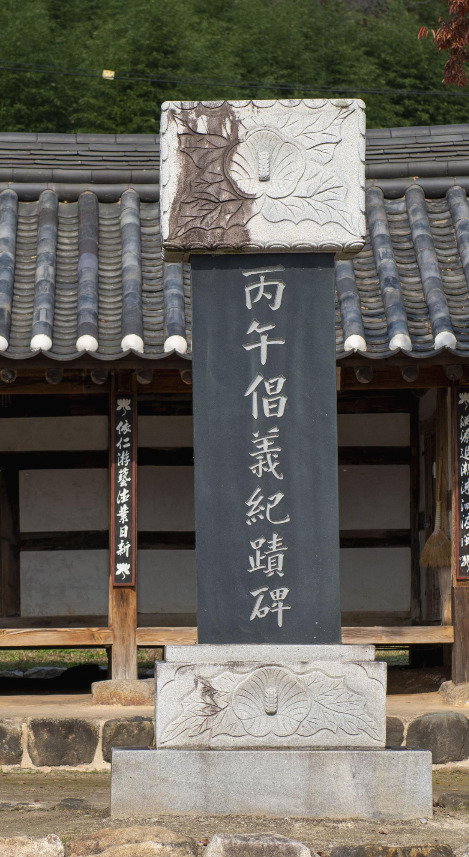 丙午倡義紀蹟碑
依仁游藝德業日新